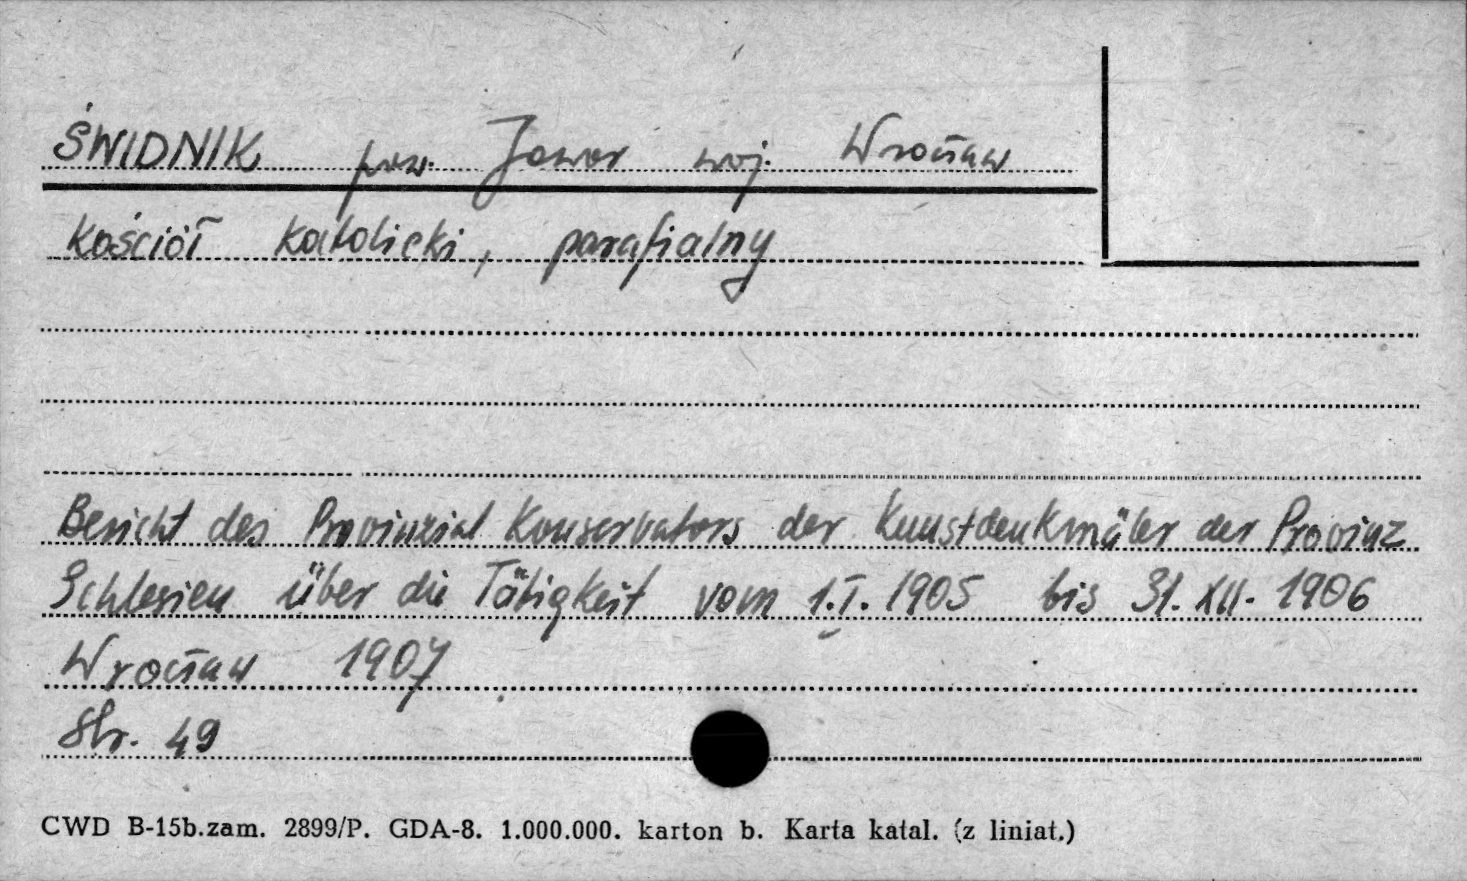 ŚWIDNIK pow. Jawor woj. Wrocław
Kościół katolicki, parafialny
Bericht des Provinzial Konservators der Kunstdenkmäler der Provinz
Schlesien über die Tätigkeit vom 1.I. 1905 bis 31. XII. 1906
Wrocław 1907
Str. 49
CWD B-15b.zam. 2899/P. GDA-8. 1.000.000. karton b. Karta katal. (z liniat.)